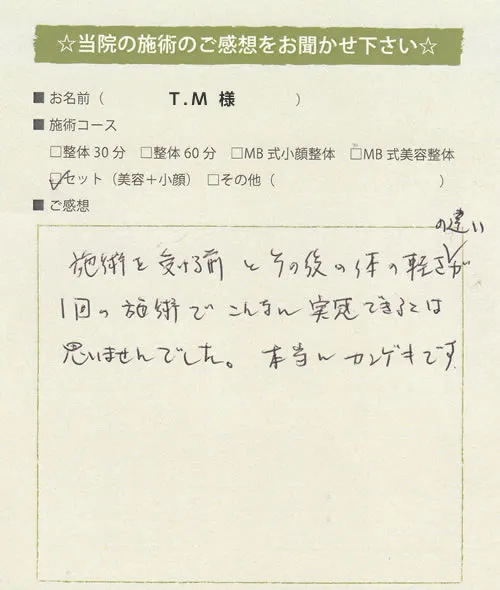 ☆当院の施術のご感想をお聞かせ下さい☆
■お名前（ T.M 様 ）
■施術コース
□整体30分 □整体60分 □MB式小顔整体 □MB式美容整体
☑セット（美容＋小顔） □その他（ ）
■ご感想
の違い
施術を受ける前とその後の体の軽さが
1回の施術でこんなに実感できるとは
思いませんでした。本当にカンゲキです